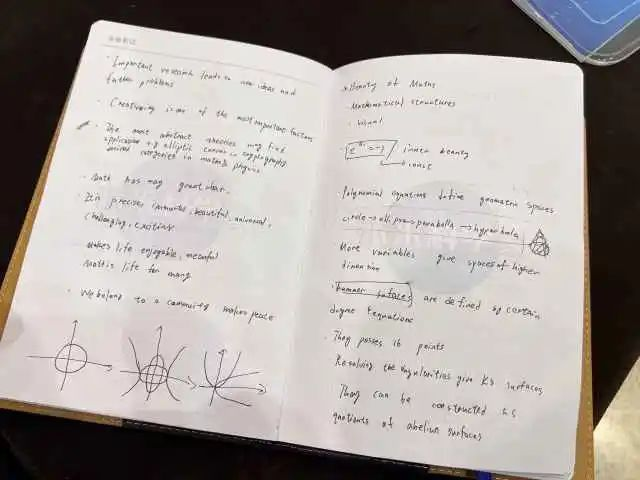 · Important research leads to new ideas and
further problems
· Creativity is one of the most important factors
· The most abstract theories may find
application e.g elliptic curves in cryptography
derived categories in
· Math has many great ideas.
· It's precise, beautiful, universal,
challenging, exciting
Makes life enjoyable, meaningful
life for many
· We belong to a community makes peace
* Beauty of Maths
· Mathematical structures
· Visual
inner beauty
Polynomial equations define geometric spaces
circle → ellipse → parabola → hyperbola
More variables give spaces of higher
dimension
· Kummer surfaces are defined by certain
degree 4 equations
They posses 16 points
Resolving the singularities give K3 surfaces
They can be constructed as
quotients of abelian surfaces